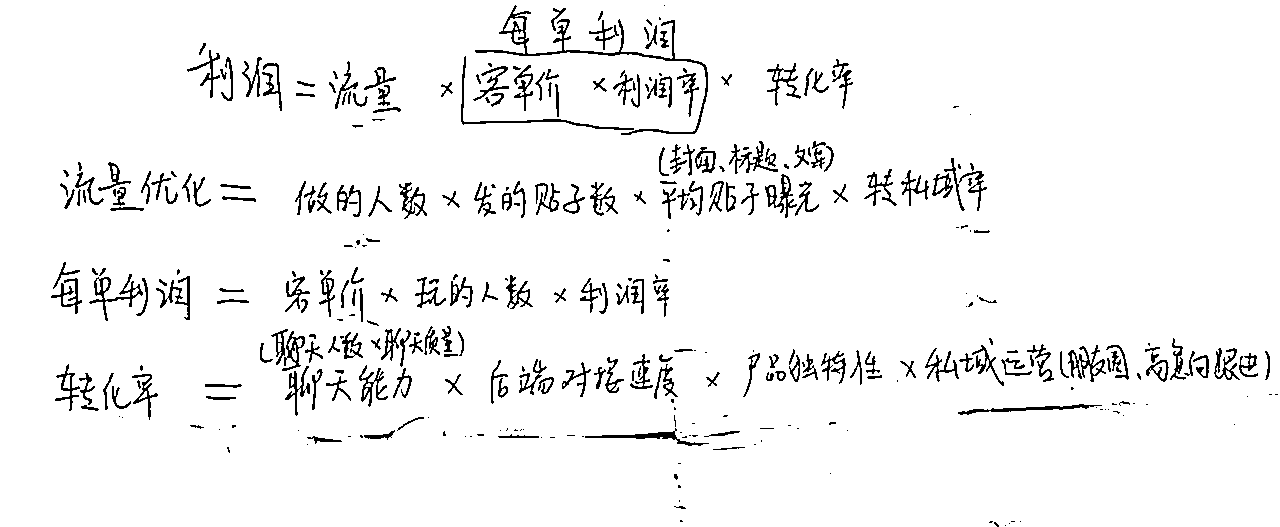 每单利润
利润 = 流量 × 客单价 × 利润率 × 转化率
(封面、标题、文案)
流量优化 = 做的人数 × 发的贴子数 × 平均贴子曝光 × 转私域率
每单利润 = 客单价 × 玩的人数 × 利润率
(聊天人数 × 聊天质量)
转化率 = 聊天能力 × 后端对接速度 × 产品独特性 × 私域运营(朋友圈、高意向跟进)